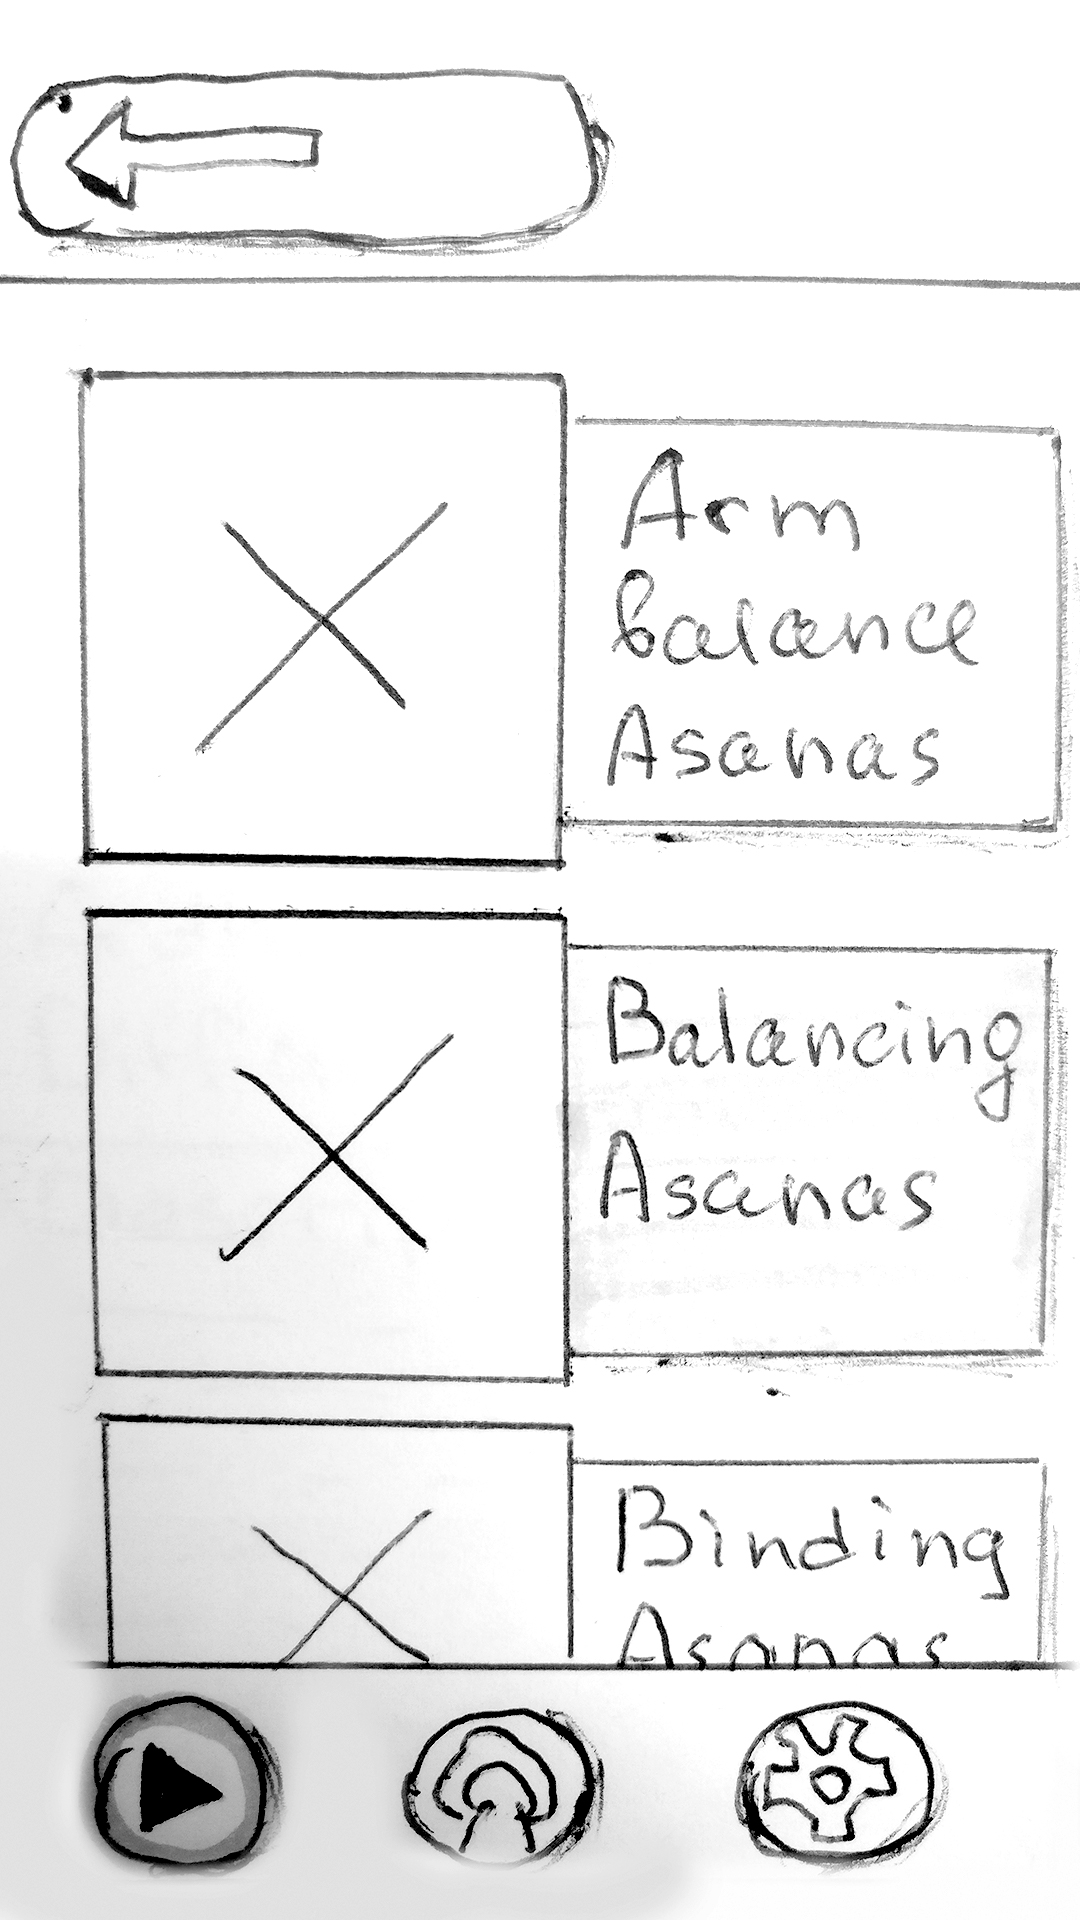 Arm
balance
Asanas
Balancing
Asanas
Binding
Asanas